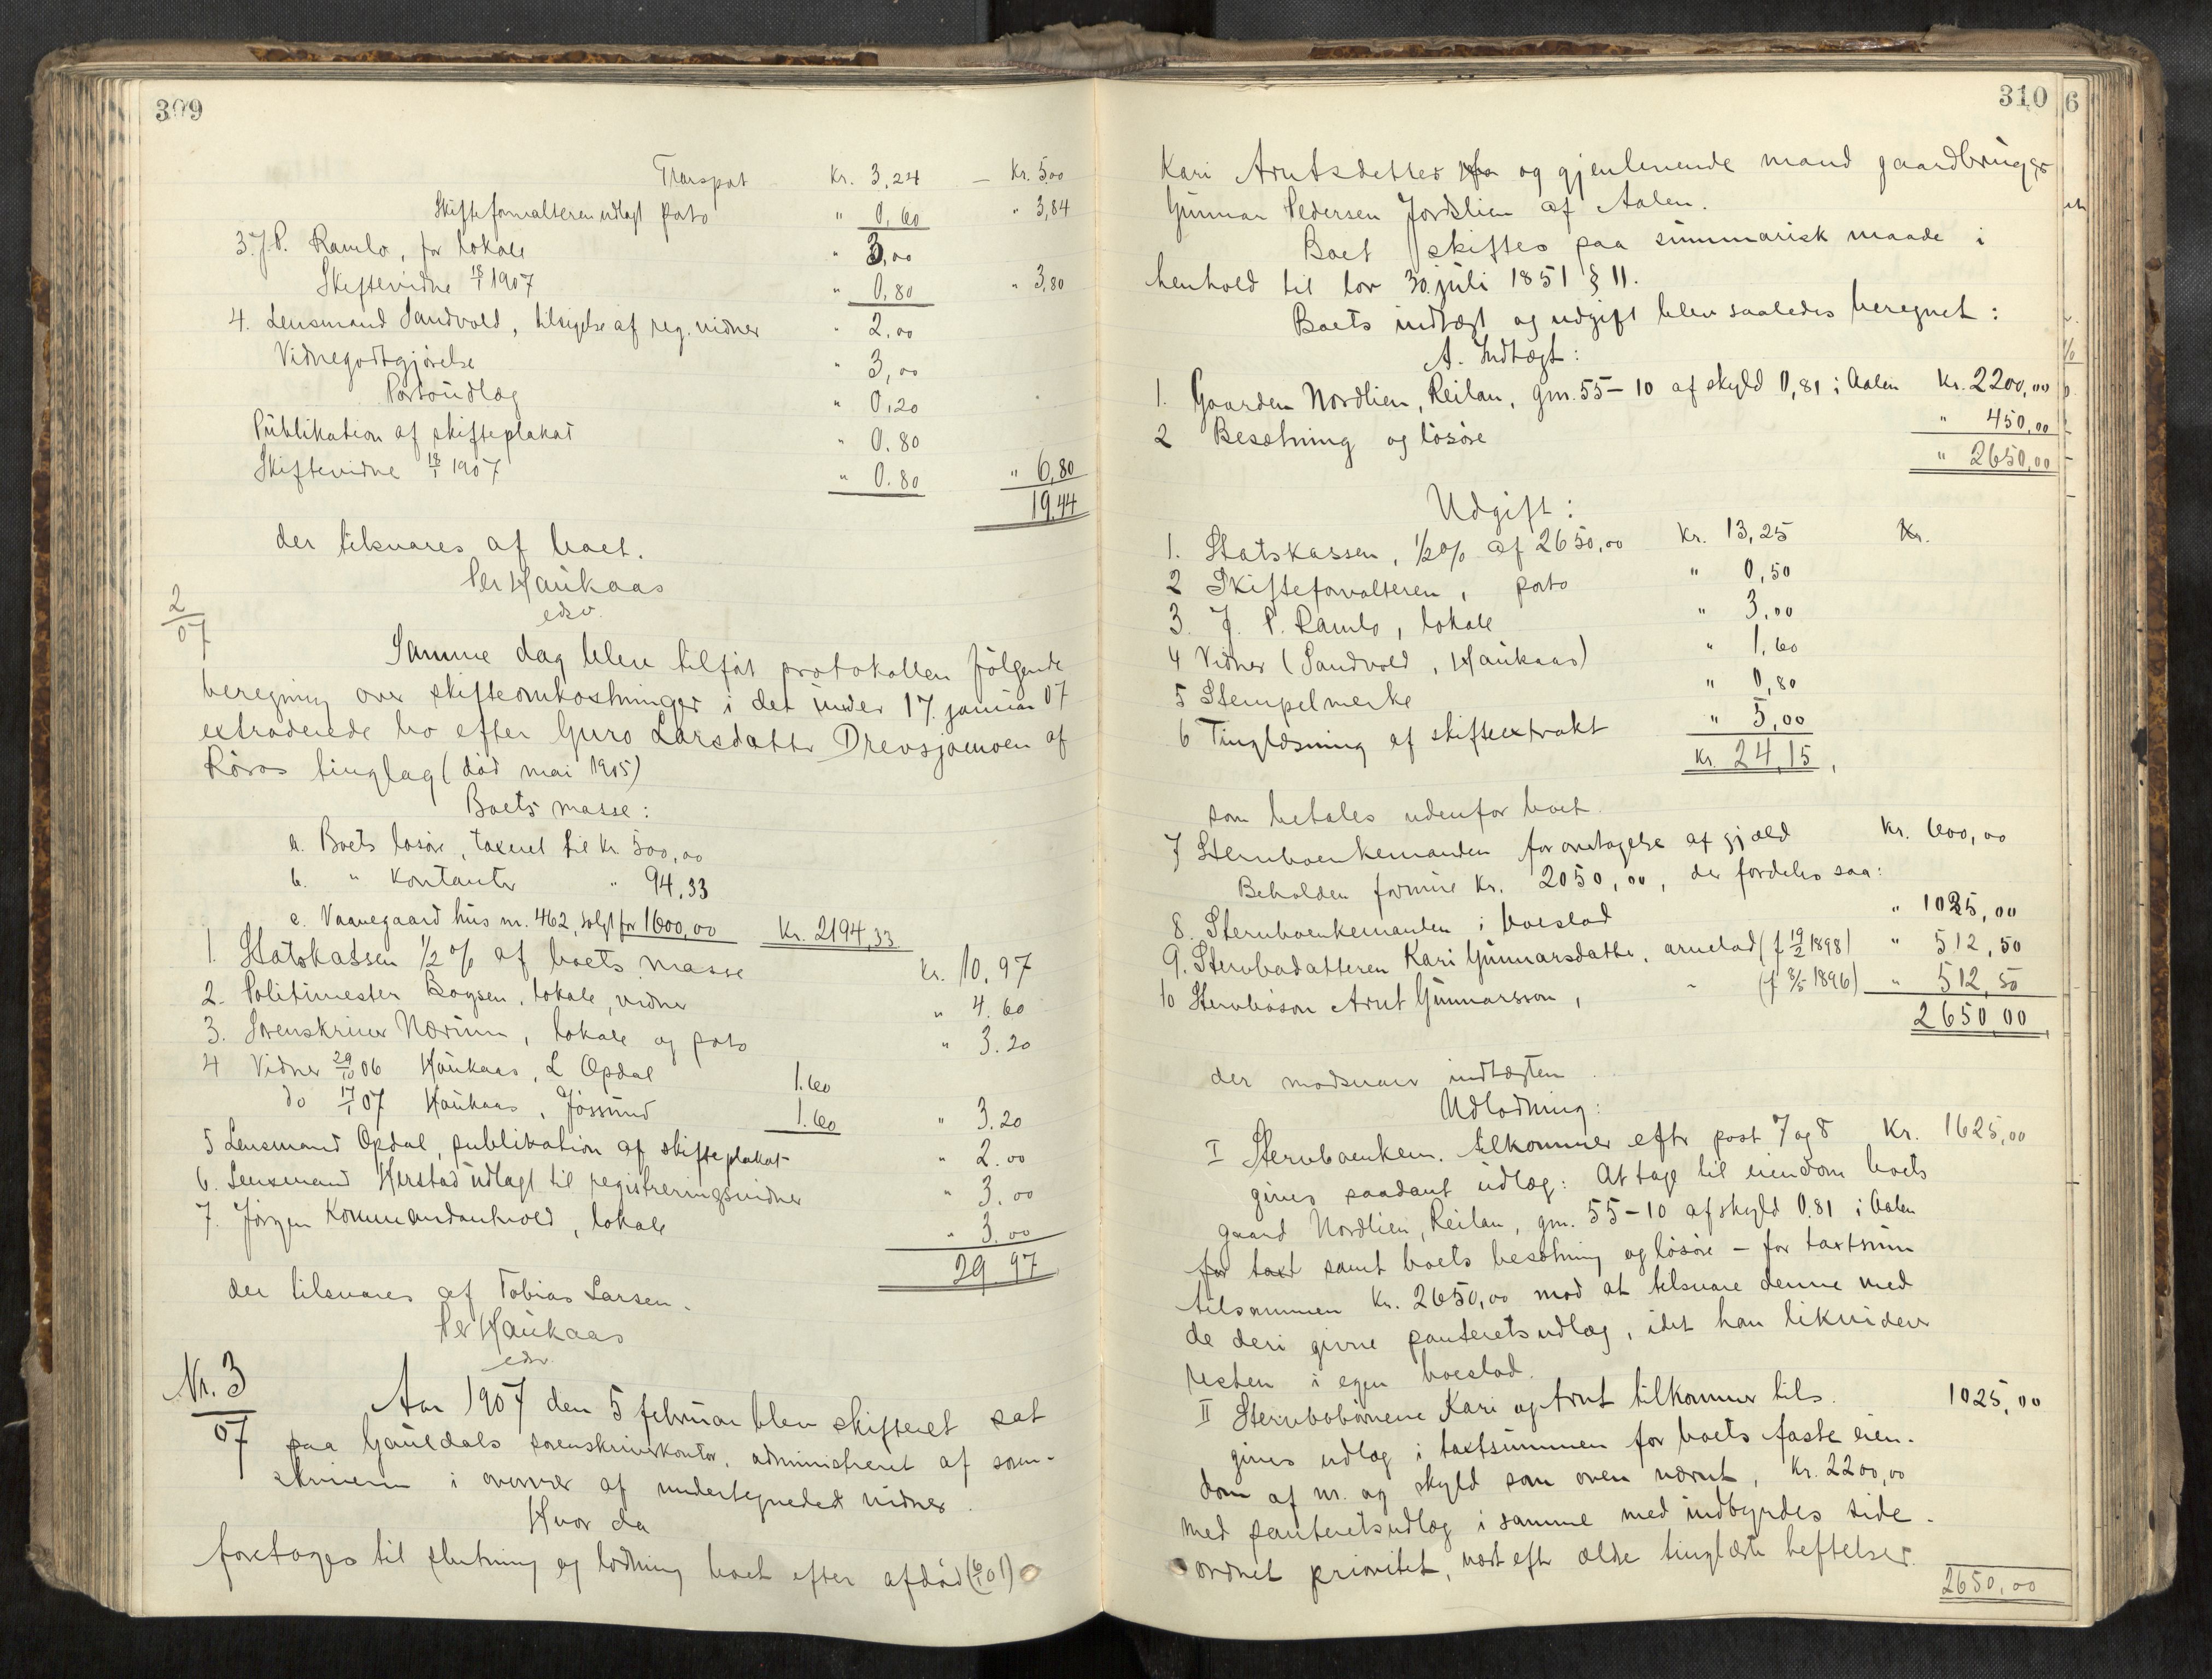 309
Transport Kr. 3,24 — Kr. 5.00
Skifteforvalteren udlagt porto " 0,60 " 3,84
3. J. P. Ramlo, for lokale " 3,00
Skiftevidne 18/1 1907 " 0,80 " 3,80
4. Lensmand Sandvold, tilsigelse af reg. vidner " 2.00
Vidnegodtgjørelse " 3,00
Portoudlæg " 0,20
Publikation af skifteplakat " 0.80
Skiftevidne 18/1 1907 " 0.80 " 6,80
19,44
der tilsvares af boet.
Per Haukaas
edsv.
2/07
Samme dag blev tilført protokollen følgende
beregning over skifteomkostninger i det under 17. januar 07
extraderede bo efter Guro Larsdatter Drevsjømoen af
Röros tinglag (død mai 1905)
Boets masse:
a. Boets løsøre, taxeret til kr 500,00
b. " Kontanter " 94,33
c. Vaanegaard hus nr. 462, solgt for 1600,00 Kr. 2194,33
1. Statskassen 1/2 % af boets masse Kr. 10,97
2. Politimester Bogsen, lokale, vidner " 4.60
3. Sorenskriver Nærum, lokale og porto " 3.20
4 Vidner 29/10 06 Haukaas, L Opdal 1.60
do 17/1 07 Haukaas, Jossund 1.60 " 3.20
5 Lensmand Opdal, publikation af skifteplakat " 2.00
6. Lensmand Herstad udlagt til registreringsvidner " 3.00
7. Jörgen Kommandantvold, lokale " 3.00
29.97
der tilsvares af Tobias Larsen.
Per Haukaas
edsv.
Nr. 3/07
Aar 1907 den 5 februar blev skifteret sat
paa Gauldals sorenskriverkontor, administreret af soren-
skriveren i overvær af undertegnede vidner.
Hvor da
foretoges til slutning og lodning boet efter afdød (6/1 01)
310
Kari Arntsdatter og gjenlevende mand gaardbruger
Gunnar Pedersen Nordlien af Aalen.
Boet skiftes paa summarisk maade i
henhold til lov 30. juli 1851 § 11.
Boets indtægt og udgift blev saaledes beregnet:
A. Indtægt:
1. Gaarden Nordlien, Reitan, gnr. 55-10 af skyld 0,81 i Aalen Kr. 2200,00
2 Besætning og løsøre " 450,00
" 2650,00
Udgift:
1. Statskassen, 1/2 % af 2650,00 Kr. 13,25 Kr.
2 Skifteforvalteren, porto " 0,50
3. J. P. Ramlo, lokale " 3,00
4 Vidner (Sandvold, Haukaas) " 1,60
5 Stempelmerke " 0,80
6 Tinglæsning af skifteextrakt " 5,00
Kr. 24,15,
som betales udenfor boet.
7 Stervboenkemanden for overtagelse af gjæld Kr. 600,00
Beholden formue Kr. 2050,00, der fordeles saa:
8. Stervboenkemanden i boeslod " 1025,00
9. Stervbodatteren Kari Gunnarsdatter, arvelod (f 19/2 1898) " 512,50
10 Stervbosøn Arnt Gunnarsson, " (f 8/5 1896) " 512,50
2650,00
der modsvarer indtægten.
Udlodning:
I Stervboenkem. tilkommer efter post 7 og 8 Kr. 1625,00
gives saadant udlæg: At tage til eiendom boets
gaard Nordlien, Reitan, gnr. 55-10 af skyld 0.81 i Aalen
for taxt samt boets besætning og løsøre – for taxtsum
tilsammen Kr. 2650,00 mod at tilsvare denne med
de deri givne panteretsudlæg, idet han likviderer
resten i egen boeslod.
II Stervbobørnene Kari og Arnt tilkommer tils. 1025,00
gives udlæg i taxtsummen for boets faste eien-
dom af nr. og skyld som oven nævnt, Kr. 2200,00
med panteretsudlæg i samme med indbyrdes side-
ordnet prioritet, næst efter ældre tinglæste heftelser.
2650,00